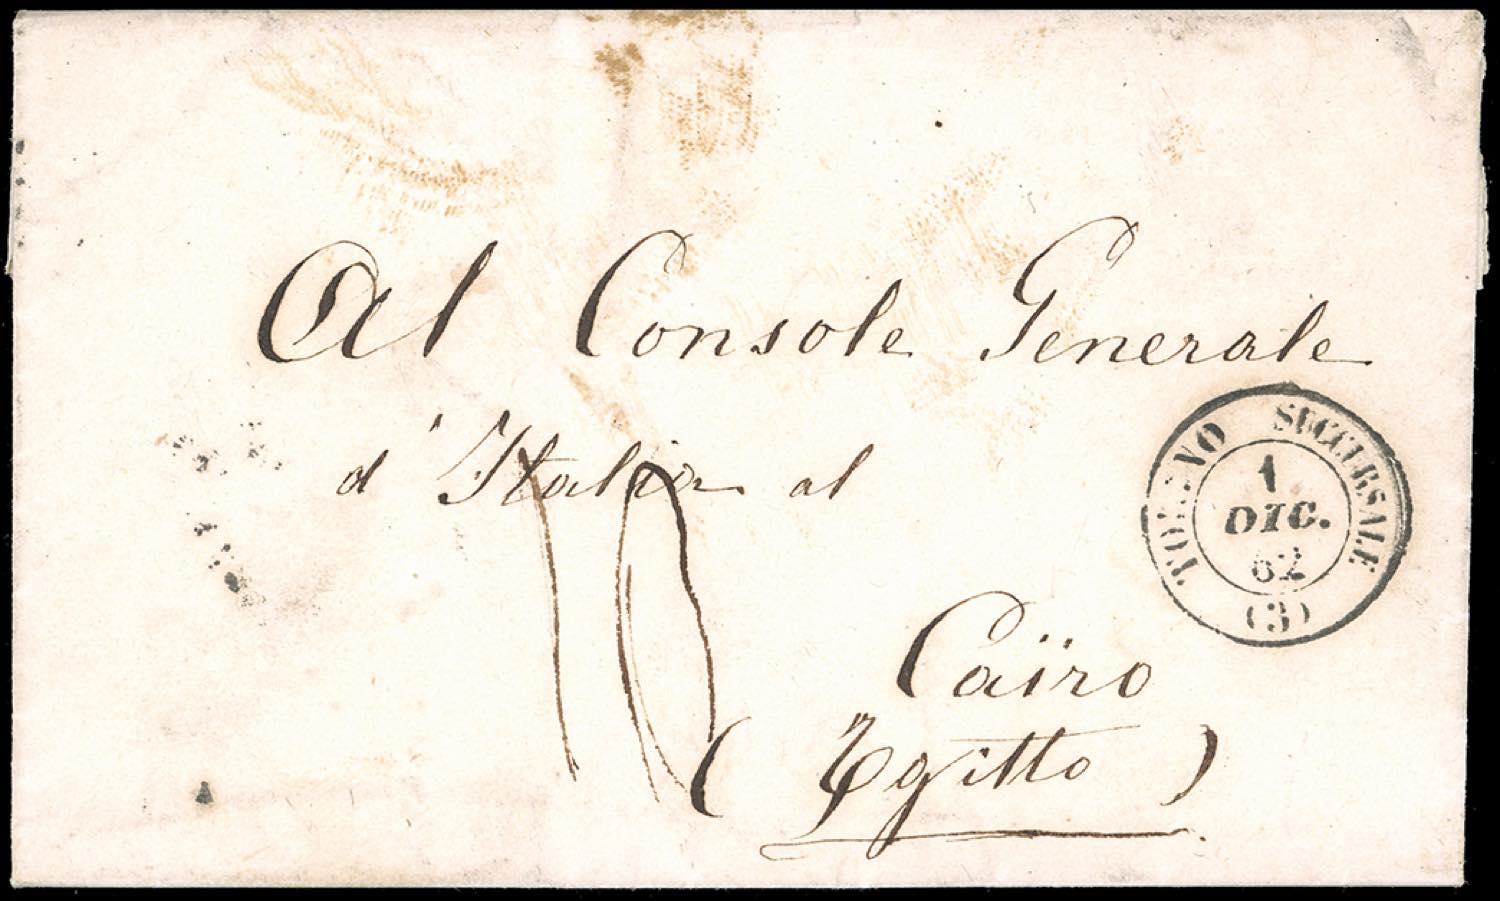 Al Console Generale
d'Italia al
Caïro
(Egitto)
10
TORINO SUCCURSALE
1
DIC.
62
(3)